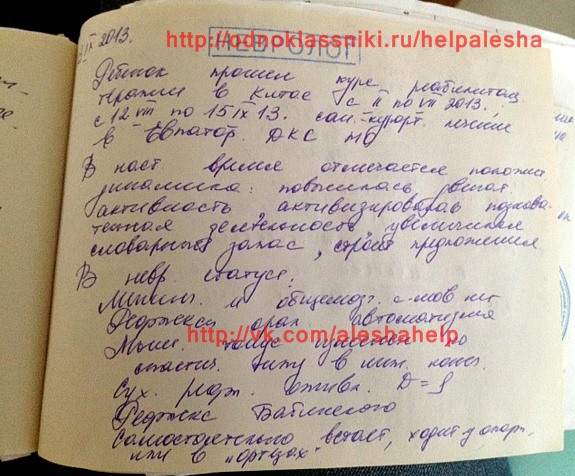 IX 2013.
http://odnoklassniki.ru/helpalesha
НЕВРОЛОГ
Ребенок прошел курс реабилитац.
терапии в Китае с II по VII 2013.,
с 12 VIII по 15 IX 13. сан.-курорт. лечение
в Евпатор. ДКС МО
В наст. время отмечается полож.
динамика: повысилась двигат.
активность, активизировалась познава-
тельная деятельность, увеличился
словарный запас, строит предложения
В невр. статусе:
Менинг. и общемозг. с-мов нет
Рефлексы орал. автоматизма
http://vk.com/aleshahelp
Мыш. тонус по
спастич. типу в ниж. конеч.
Сух. рефл. оживл. D=S
Рефлекс Бабинского
Самостоятельно встает, ходит у опоры,
или в "ортезах"